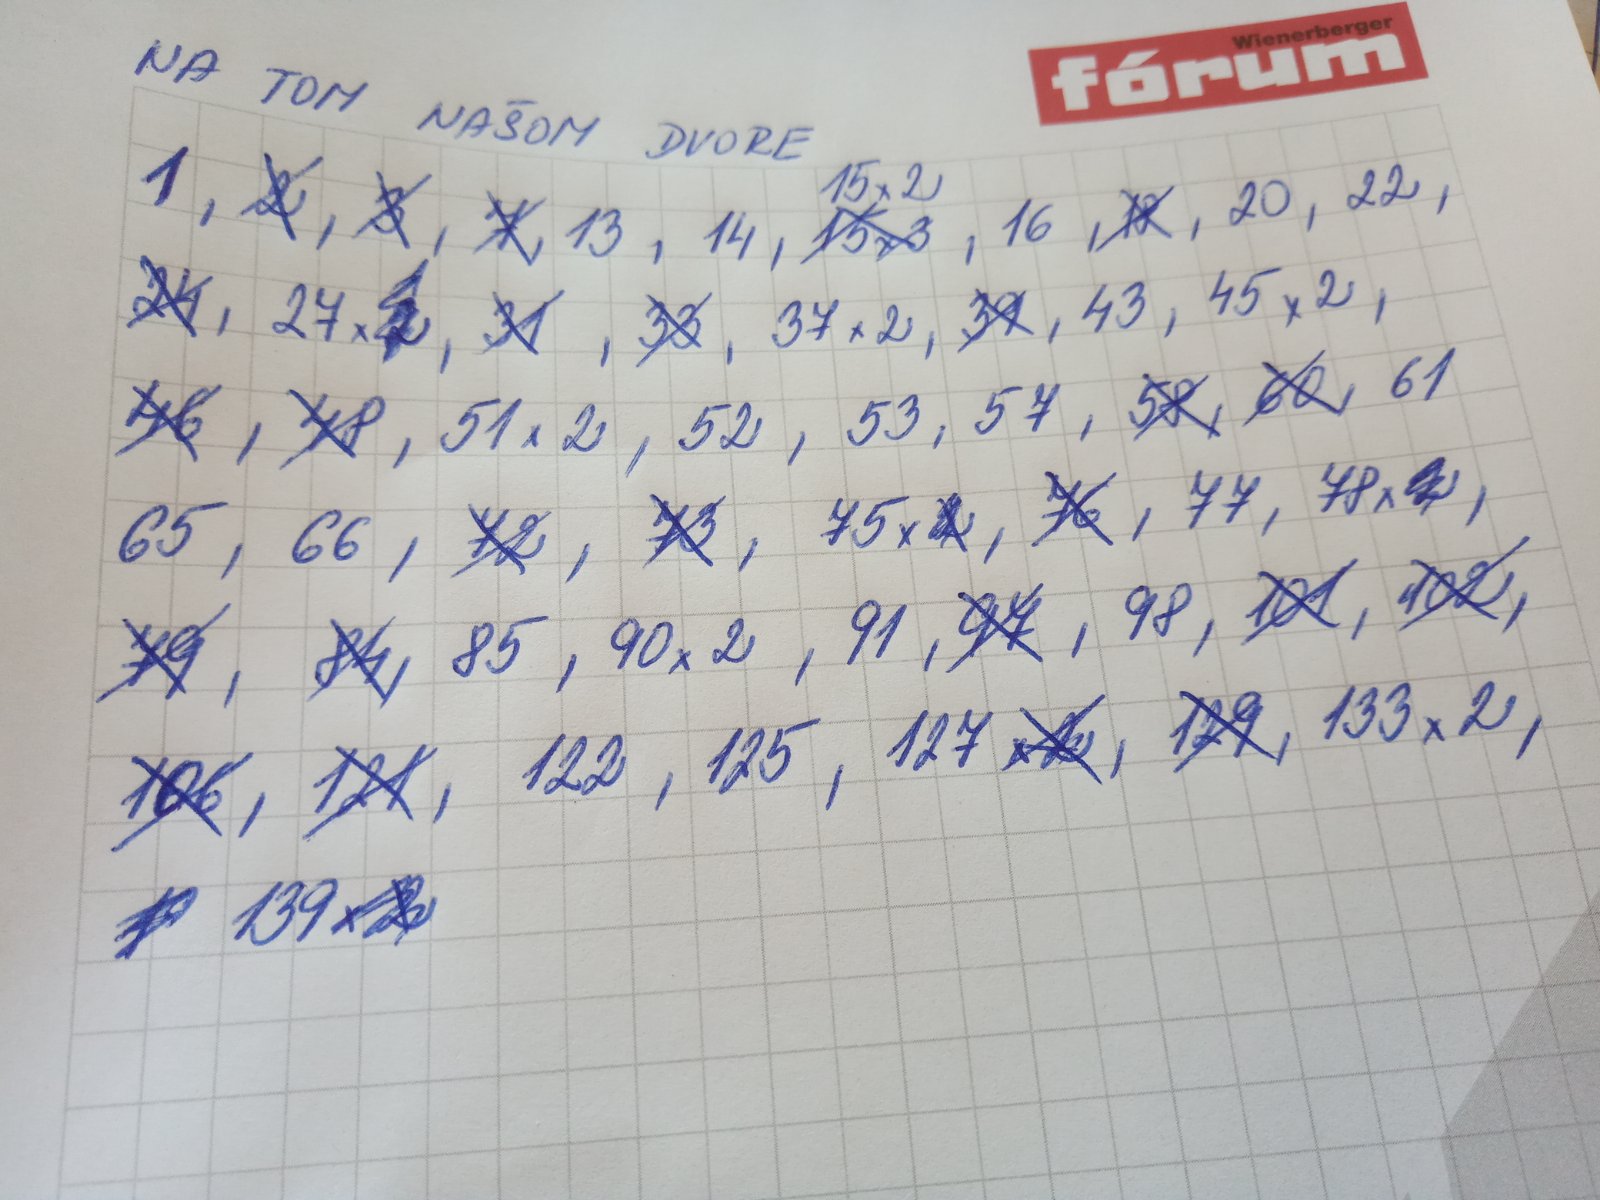 Wienerberger
fórum
NA TOM NAŠOM DVORE
15x2
1, 2, 3, 7, 13, 14, 15x3, 16, 18, 20, 22,
24, 27x, 31, 33, 37x2, 39, 43, 45x2,
46, 48, 51x2, 52, 53, 57, 58, 60, 61
65, 66, 72, 73, 75x, 76, 77, 78x,
79, 84, 85, 90x2, 91, 97, 98, 101, 102,
106, 121, 122, 125, 127x2, 129, 133x2,
139x